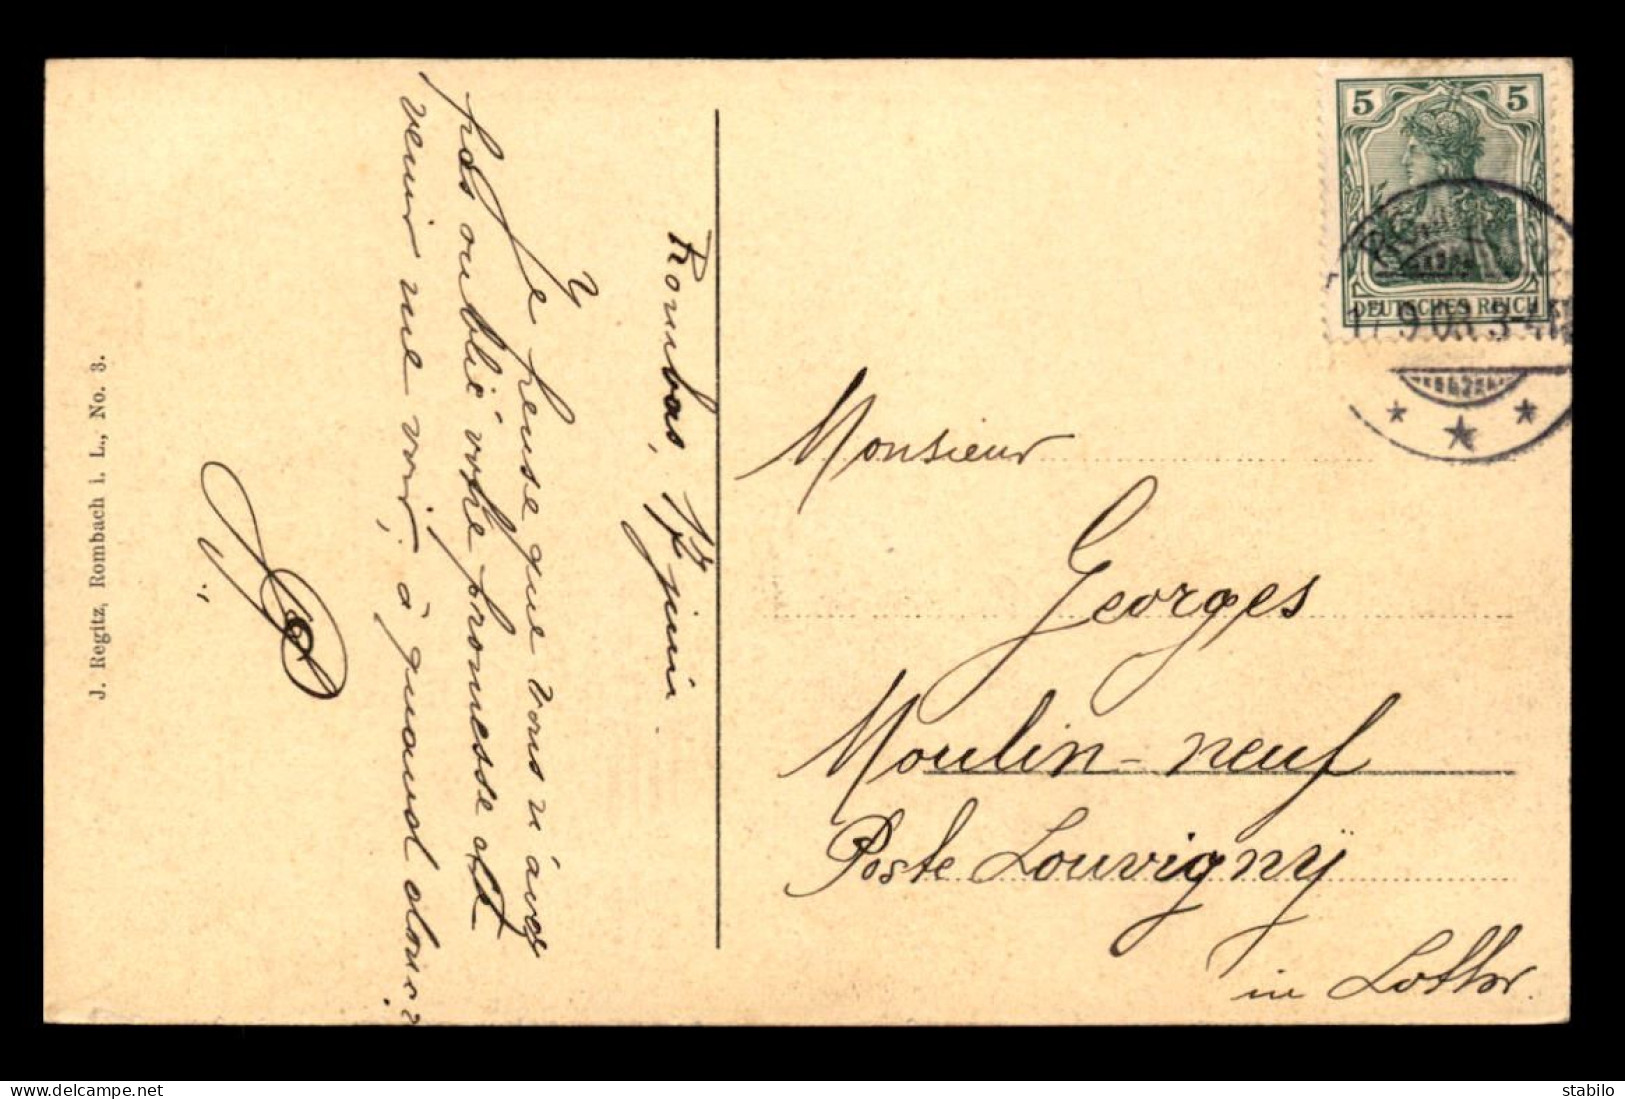 Rombas, 17 juin.
Y
Je pense que vous n'avez
pas oublié votre promesse de
venir me voir, à quand donc?
J. Regitz, Rombach i. L., No. 3.
5 5
DEUTSCHES REICH
17.9.05. 3-4N
Monsieur
Georges
Moulin-neuf
Poste Louvigny
in Lothr.
delcampe.net
stabilo